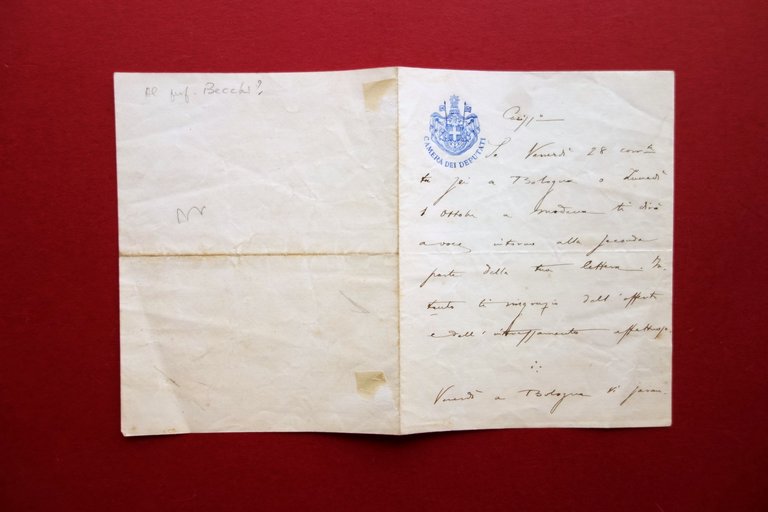 Al prof. Becchi?
CAMERA DEI DEPUTATI
Cariss.
Se Venerdì 28 corr.te
tu sei a Bologna o Lunedì
1 Ottobre a Modena ti dirò
a voce intorno alla seconda
parte della tua lettera. In
tanto ti ringrazio dell'offerta
e dell' affettuoso
Venerdì a Bologna vi saran